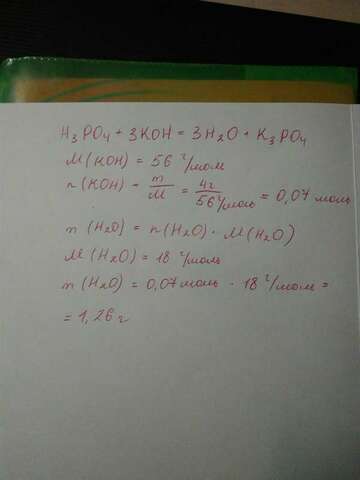 H₃PO₄ + 3KOH = 3H₂O + K₃PO₄
M(KOH) = 56 г/моль
n(KOH) = m/M = 4г/56 г/моль = 0,07 моль
m(H₂O) = n(H₂O) · M(H₂O)
M(H₂O) = 18 г/моль
m(H₂O) = 0,07 моль · 18 г/моль =
= 1,26 г